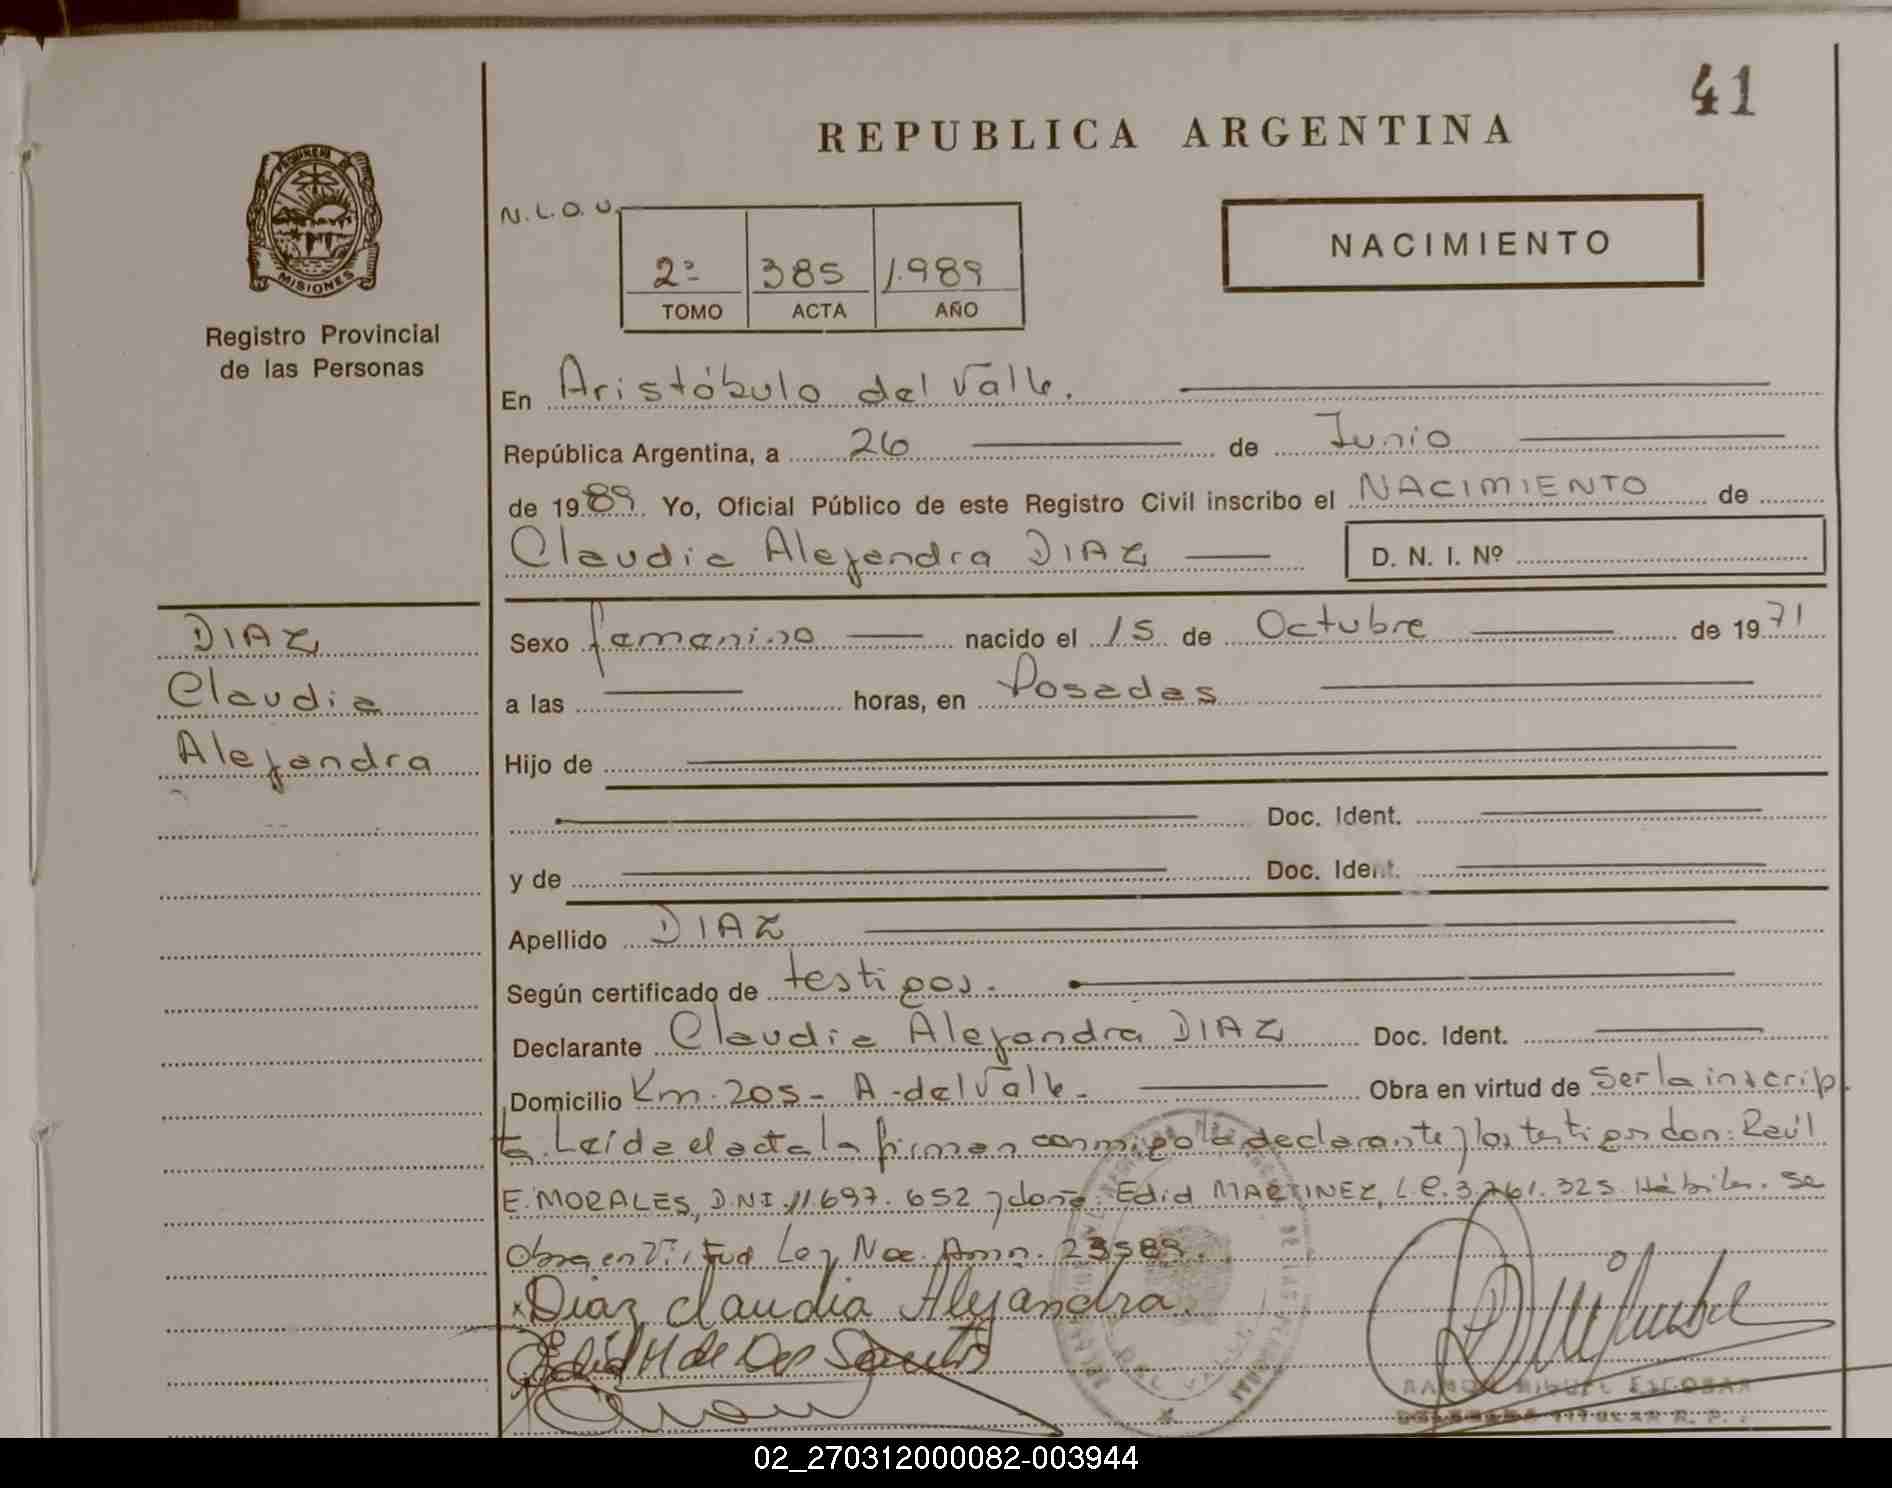 41
REPUBLICA ARGENTINA
MISIONES
Registro Provincial
de las Personas
N.L.O.U.
2º 385 1.989
TOMO ACTA AÑO
NACIMIENTO
En Aristóbulo del Valle.
República Argentina, a 26 de Junio
de 1989. Yo, Oficial Público de este Registro Civil inscribo el NACIMIENTO de
Claudia Alejandra DIAZ D. N. I. Nº
DIAZ
Claudia
Alejandra
Sexo femenino nacido el 15 de Octubre de 1971
a las horas, en Posadas
Hijo de
Doc. Ident.
y de Doc. Ident.
Apellido DIAZ
Según certificado de testigos.
Declarante Claudia Alejandra DIAZ Doc. Ident.
Domicilio Km. 205 - A. del Valle - Obra en virtud de ser la inscrip
ta. Leída el acta la firman conmigo la declarante y los testigos don: Raúl
E. MORALES, D.NI. 11.697.652 y doña: Edid MARTINEZ, L.C. 3.761.325. Hábiles. Se
Obra en Virtud Ley Nac. 23589.
x Diaz Claudia Alejandra.
Edid M de Dos Santos
RAMON MIGUEL ESCOBAR
TITULAR R. P.
DEL VALLE
02_270312000082-003944